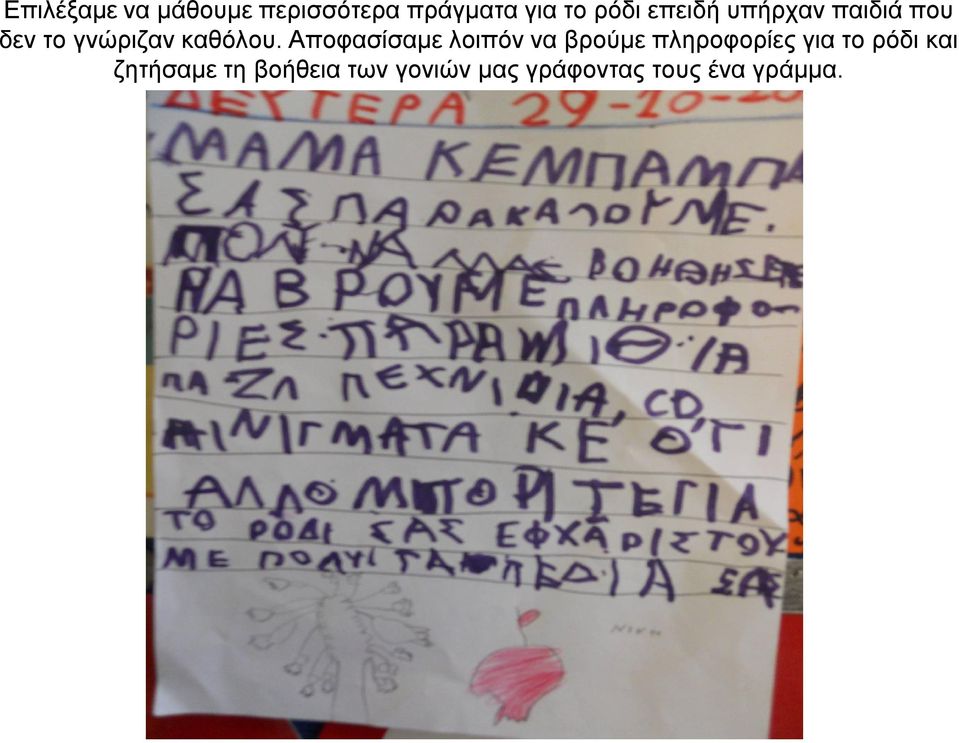 Επιλέξαμε να μάθουμε περισσότερα πράγματα για το ρόδι επειδή υπήρχαν παιδιά που
δεν το γνώριζαν καθόλου. Αποφασίσαμε λοιπόν να βρούμε πληροφορίες για το ρόδι και
ζητήσαμε τη βοήθεια των γονιών μας γράφοντας τους ένα γράμμα.
ΔΕΥΤΕΡΑ 29-10-20
ΜΑΜΑ ΚΕ ΜΠΑΜΠΑ
ΣΑΣ ΠΑΡΑΚΑΛΟΥΜΕ.
ΠΟΛΥ ΝΑ ΜΑΣ ΒΟΗΘΗΣΕΤΕ
ΝΑ ΒΡΟΥΜΕ ΠΛΗΡΟΦΟ
ΡΙΕΣ. ΠΑΡΑΜΙΘΙΑ
ΠΑΖΛ ΠΕΧΝΙΔΙΑ, CD,
ΑΙΝΙΓΜΑΤΑ ΚΕ Ο,ΤΙ
ΑΛΛΟ ΜΠΟΡΙΤΕ ΓΙΑ
ΤΟ ΡΟΔΙ ΣΑΣ ΕΦΧΑΡΙΣΤΟΥ
ΜΕ ΠΟΛΥ ΤΑ ΠΕΔΙΑ ΣΑΣ
ΝΙΚΗ